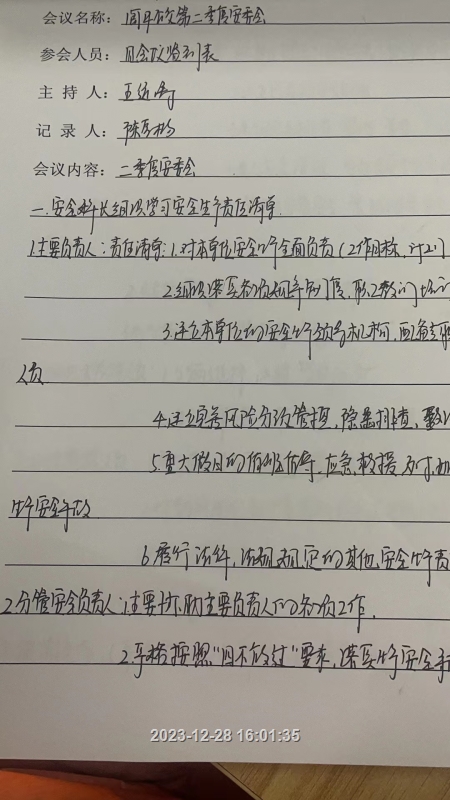 会议名称: 第二季度安委会
参会人员: 见会议签到表
主持人: 王
记录人: 陈
会议内容: 二季度安委会
一.安全科长组织学习安全生产责任清单
1.主要负责人:责任清单:1.对本单位安全生产全面负责(工作目标、计划
2.组织落实各项规章制度,职工教育培训
3.建立本单位的安全生产领导机构,配备专职
人员
4.建立完善风险分级管控,隐患排查,
5.重大假日的值班值守、应急救援
生产安全事故
6.履行法律,法规规定的其他,安全生产责
2.分管安全负责人:1.主要协助主要负责人的各项工作.
2.严格按照"四不放过"要求,落实生产安全事
2023-12-28 16:01:35